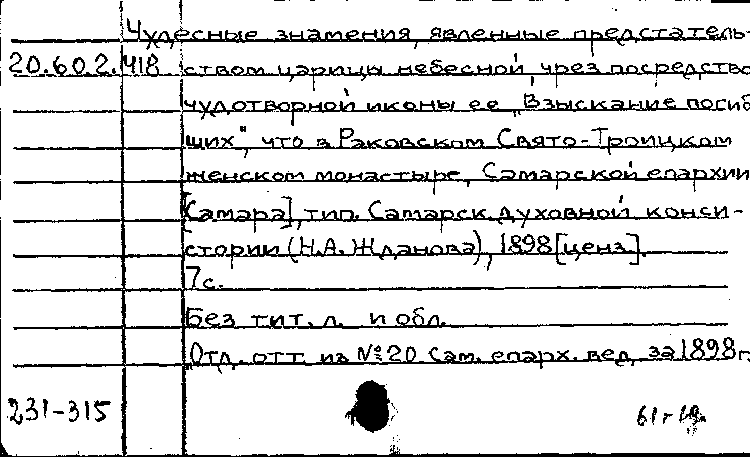 Чудесные знамения, явленные предстатель-
20.60.2.418 ством царицы небесной, чрез посредство
чудотворной иконы ее „Взыскание погиб
ших", что в Раковском Свято-Троицком
женском монастыре, Самарской епархии
[Самара], тип. Самарск. духовной конси-
стории (Н.А. Жданова), 1898 [ценз].
7с.
Без тит. л. и обл.
Отд. отт. из №20 Сам. епарх. вед. за 1898г.
231-315